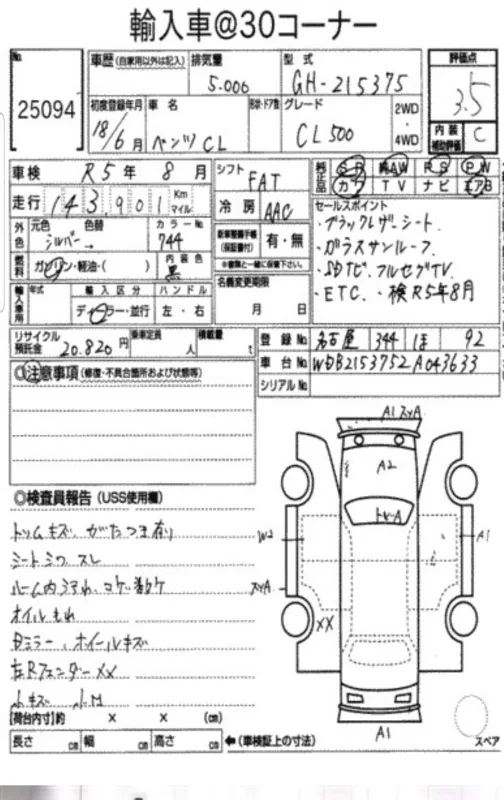 輸入車@30コーナー
No. 25094
車歴 (自家用以外は記入) 排気量 5.006
型式 GH-215375
評価点 3.5
初度登録年月 18/6月
車名 ベンツ CL
形状・ドア数
グレード CL500
2WD・4WD
内装補助評価 C
車検 R5年 8月
シフト FAT
純正品 SR 純AW PS PW
カワ TV ナビ エアB
走行 143,901 Km マイル
冷房 AAC
セールスポイント
・ブラックレザーシート
・ガラスサンルーフ
フルセグTV
・ETC. ・検R5年8月
外色 元色 シルバー 色替 → カラーNo. 744
(保証書付) 有・無
※書類と一緒に保管下さい。
燃料 ガソリン・軽油・( ) 内装色 黒
名義変更期限 月 日
輸入車用 年式 輸入区分 ディーラー・並行 ハンドル 左・右
リサイクル預託金 20.820円 乗車定員 人 積載量 t
登録No. 名古屋 344 ほ 92
車台No. WDB2153752A043633
シリアルNo.
◎注意事項 (修復・不具合箇所および状態等)
◎検査員報告 (USS使用欄)
トリムキズ、がたつき有り
シートシワ、スレ
オイルもれ
Dミラー、ホイールキズ
左RフェンダーXX
小キズ 小M
A1
A2
W2
A1
XX
A1
スペア
【荷台内寸】約 × × (cm)
長さ cm 幅 cm 高さ cm ←(車検証上の寸法)